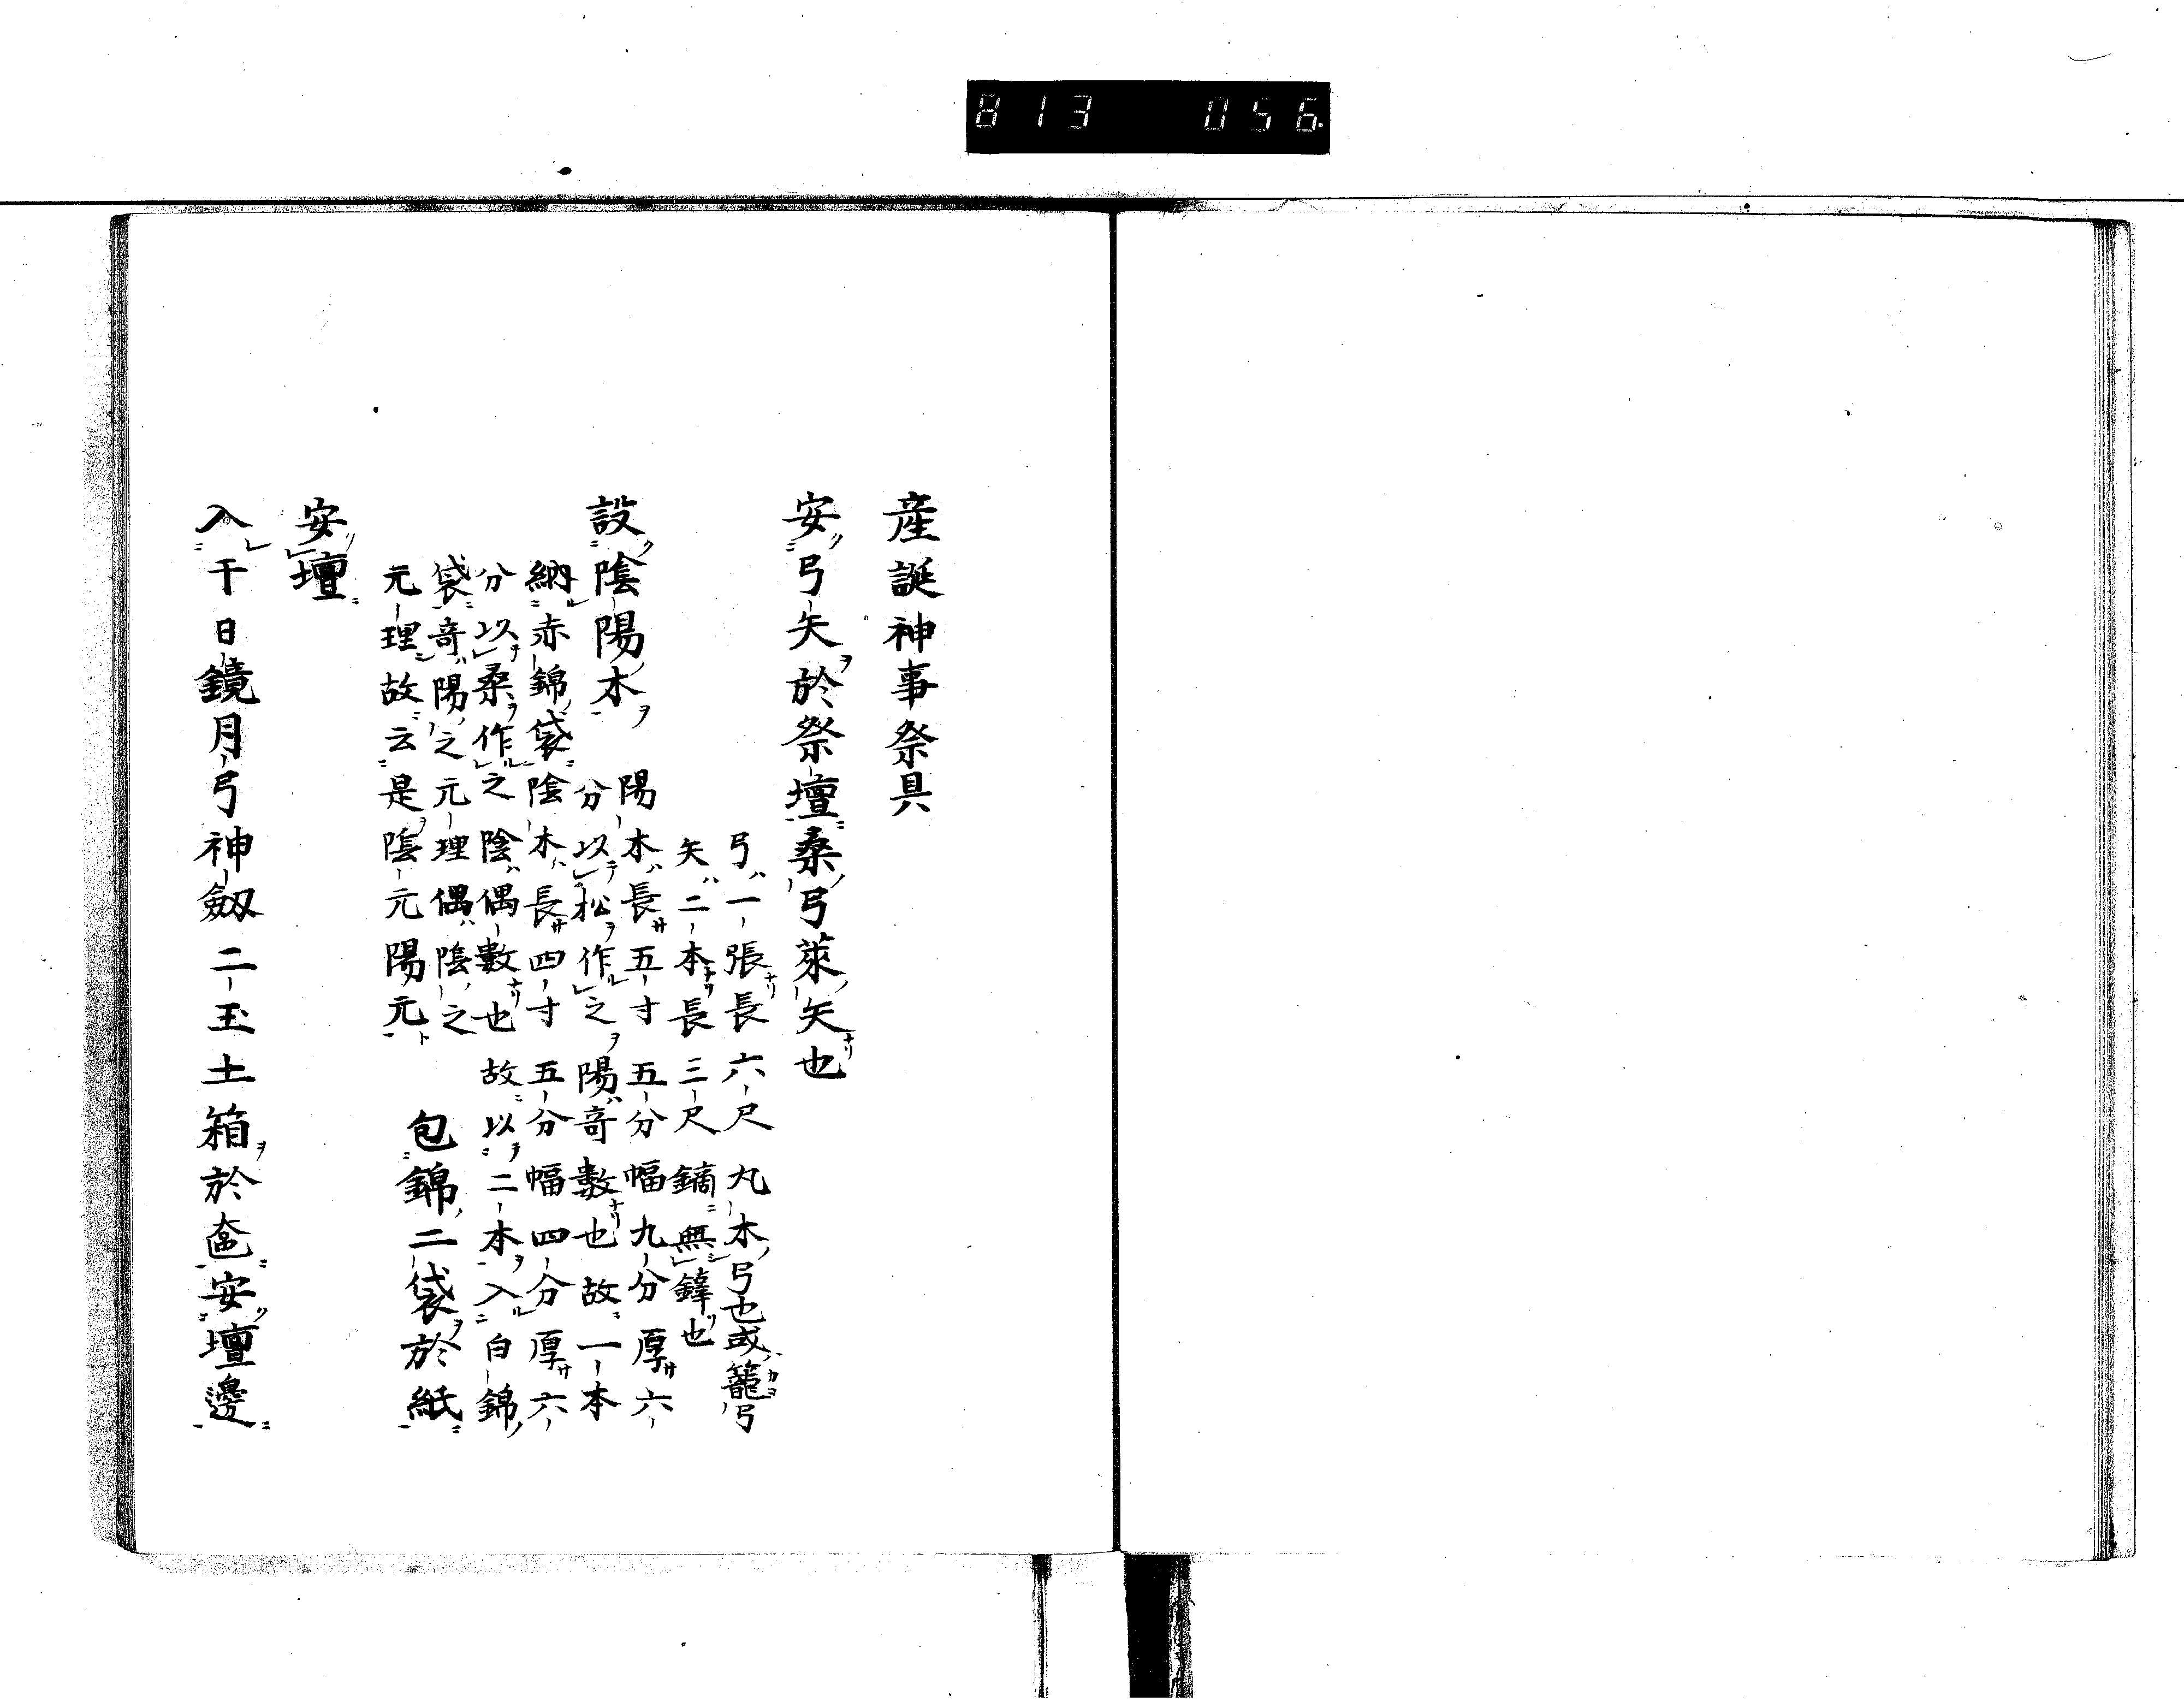 813 056.
産誕神事祭具
安弓矢於祭壇桑弓萊矢也
弓一張長六尺 丸木弓也或籠弓
矢二本長三尺 鏑無鋒也
設陰陽木 陽木長五寸五分幅九分厚六
分以松作之陽奇數也故一本
納赤錦袋陰木長四寸五分幅四分厚六
分以桑作之陰偶數也故以二本入白錦
袋奇陽之元理偶陰之
元理故云是陰元陽元 包錦二袋於紙
安壇
入干日鏡月弓神劔二玉土箱於奩安壇邊